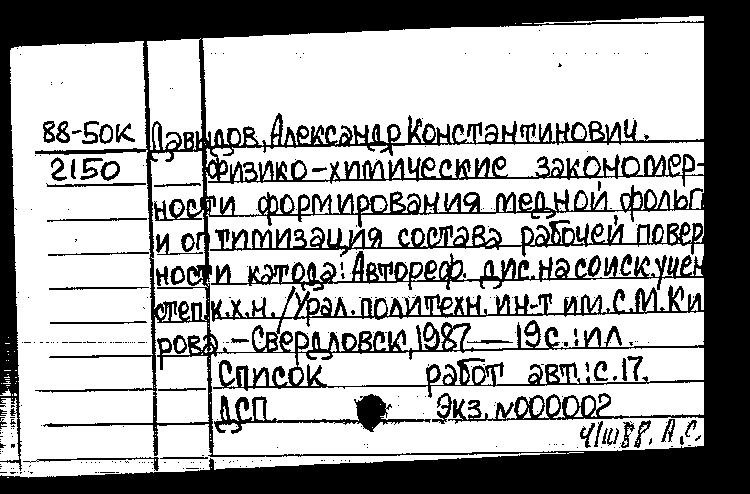 88-50К Давыдов, Александр Константинович.
2150 Физико-химические закономер-
ности формирования медной фольг
и оптимизация состава рабочей повер
ности катода: Автореф. дис. на соиск. учен
степ. к.х.н. /Урал. политехн. ин-т им. С.М. Ки
рова. - Свердловск, 1987. — 19с.: ил.
Список работ авт.: с. 17.
ДСП Экз. N000002
4/III 88. А.С.